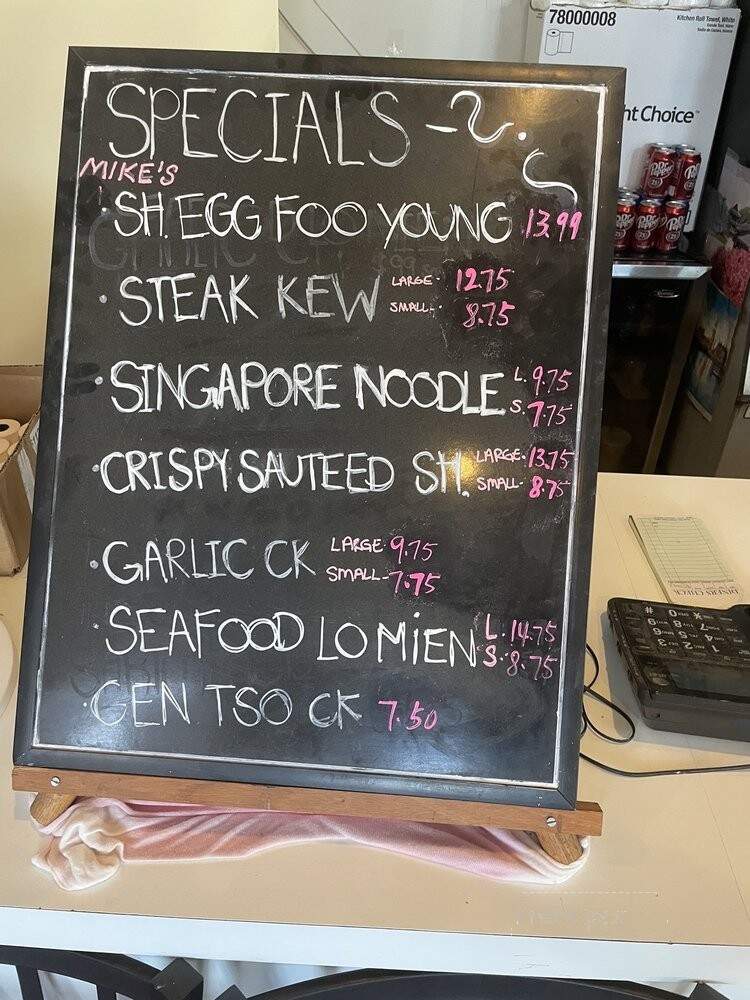 78000008
Kitchen Roll Towel, White
ht Choice
Dr Pepper
SPECIALS
MIKE'S
SH. EGG FOO YOUNG 13.99
STEAK KEW LARGE- 12.75
SMALL- 8.75
SINGAPORE NOODLE L. 9.75
S. 7.75
CRISPY SAUTEED SH. LARGE- 13.75
SMALL- 8.75
GARLIC CK LARGE 9.75
SMALL- 7.75
SEAFOOD LO MiEN L. 14.75
S. 8.75
GEN TSO CK 7.50
DINERS CHECK